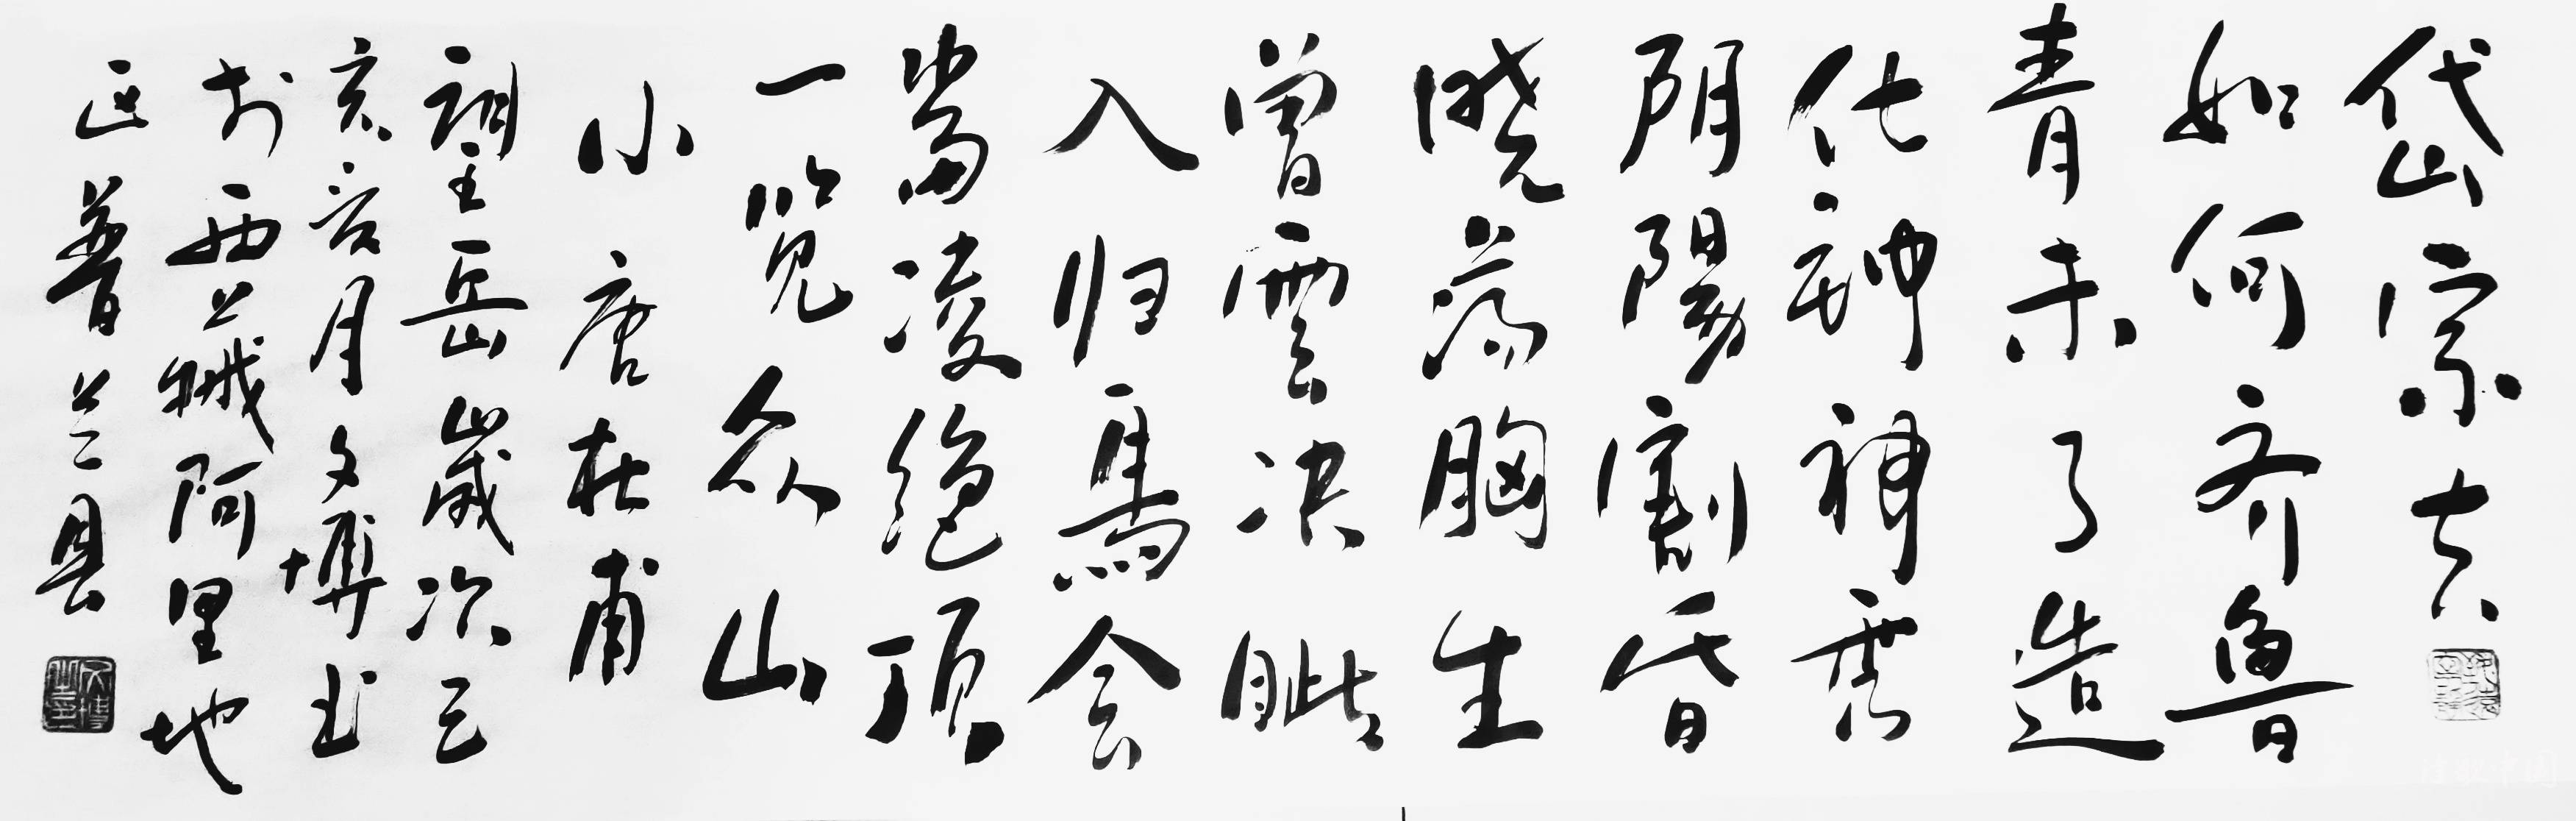 岱宗夫
如何齐鲁
青未了造
化钟神秀
阴陽割昏
晓荡胸生
曾雲决眦
入归鳥会
當凌绝顶
一览众山
小 唐杜甫
望岳 歲次己
亥月文博书
於西藏阿里地
区普兰县